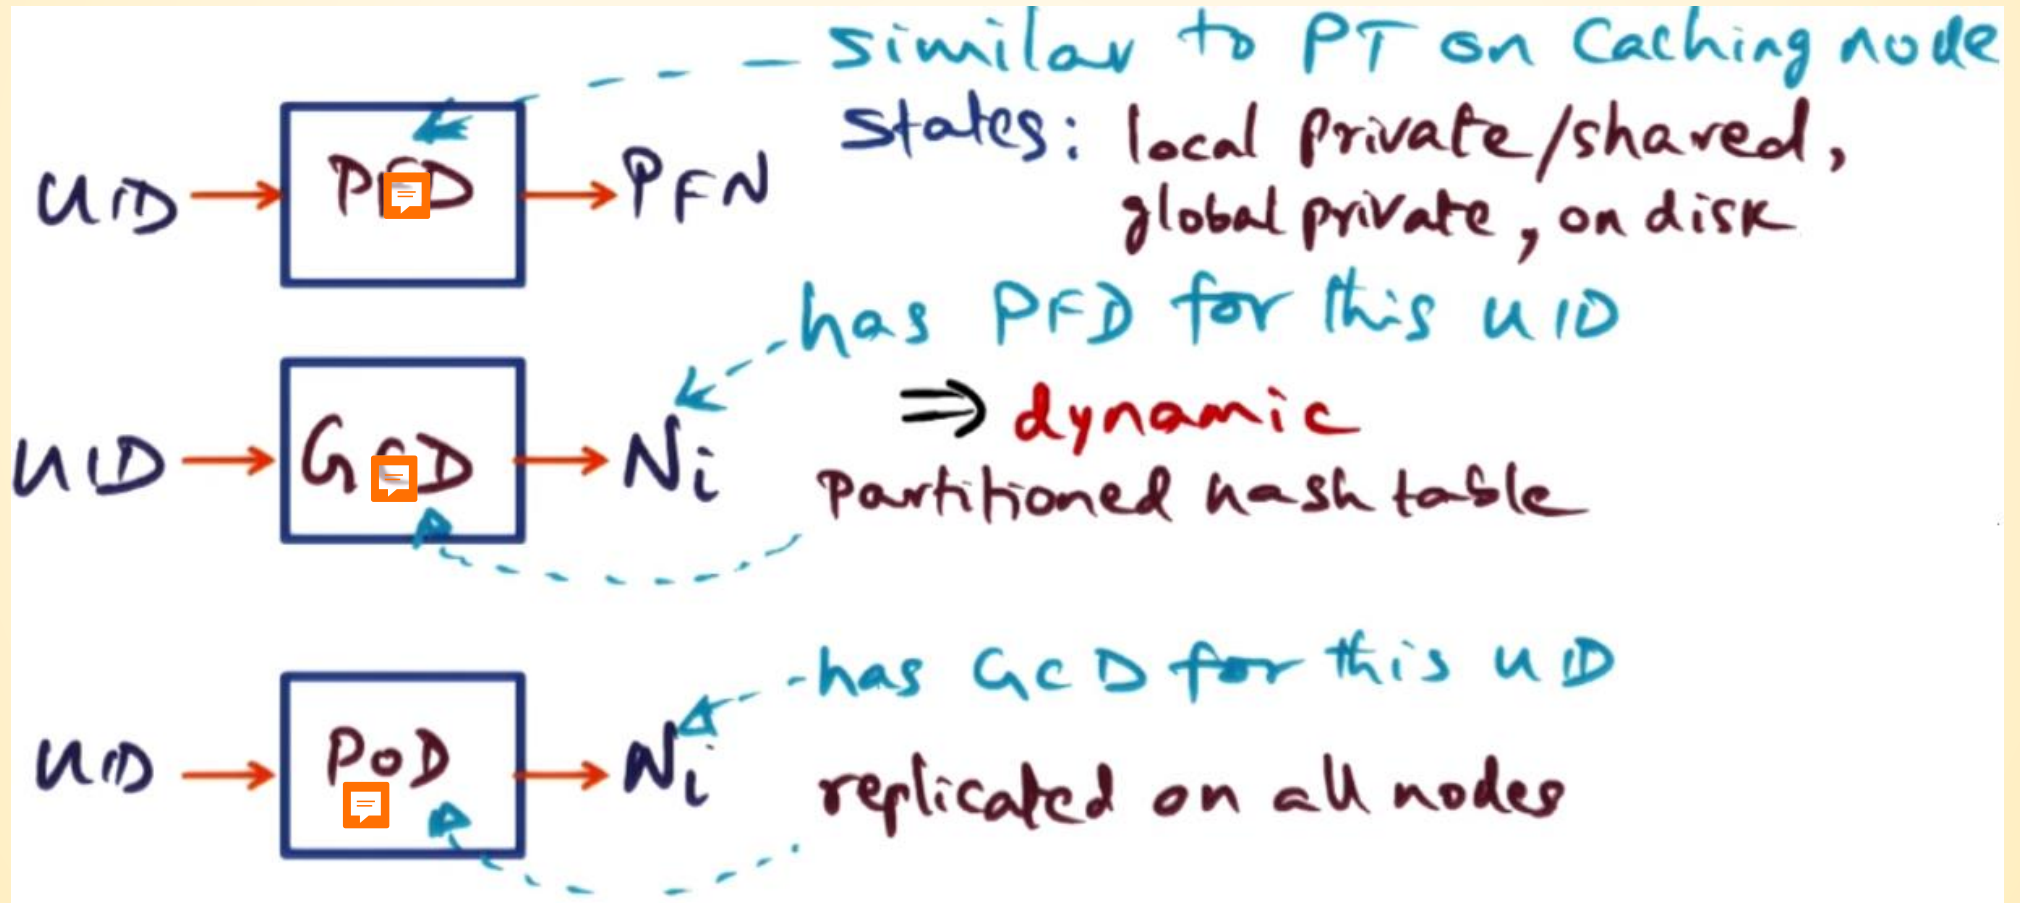 similar to PT on Caching node
States: local private/shared,
UID PFD PFN
global private, on disk
has PFD for this UID
⇒ dynamic
UID GCD Ni
Partitioned hash table
has GCD for this UID
UID PoD Ni
replicated on all nodes